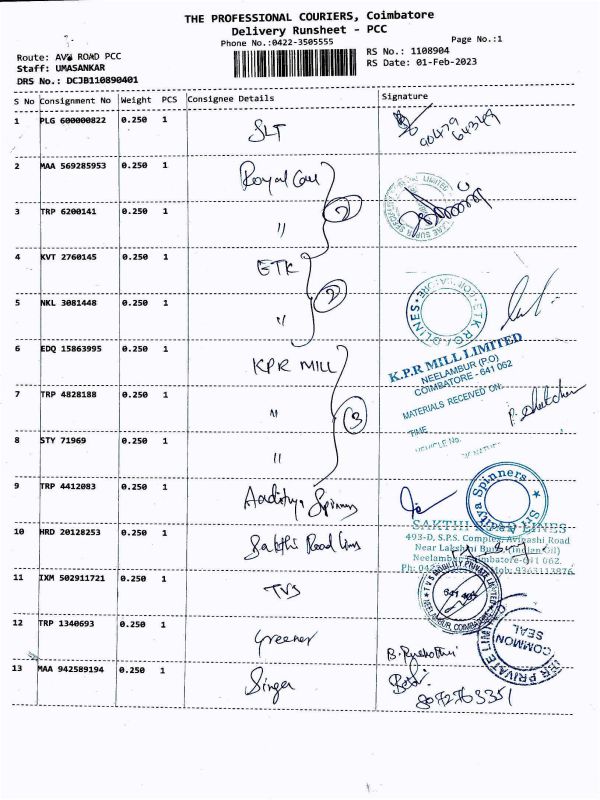 THE PROFESSIONAL COURIERS, Coimbatore
Delivery Runsheet - PCC
Phone No.:0422-3505555
Page No.:1
Route: AVA ROAD PCC
RS No.: 1108904
Staff: UMASANKAR
RS Date: 01-Feb-2023
DRS No.: DCJB110890401
S No Consignment No Weight PCS Consignee Details Signature
1 PLG 600000822 0.250 1 SLT
2 MAA 569285953 0.250 1 Royal Care
3 TRP 6200141 0.250 1 " 2
4 KVT 2760145 0.250 1 ETK
5 NKL 3081448 0.250 1 " 2
6 EDQ 15863995 0.250 1 KPR MILL
7 TRP 4828188 0.250 1 " 3
8 STY 71969 0.250 1 "
9 TRP 4412083 0.250 1 Aaditya Spinners
10 HRD 20128253 0.250 1 Sakthi Road Lines
11 IXM 502911721 0.250 1 TVS
12 TRP 1340693 0.250 1 Greener
13 MAA 942589194 0.250 1 Singer
K.P.R MILL LIMITED
NEELAMBUR (P.O)
COIMBATORE - 641 062
MATERIALS RECEIVED ON:
TIME
VEHICLE No.
Spinners
SAKTHI ROAD LINES
493-D, S.P.S. Complex, Avinashi Road
Near Lakshmi Bunk (Indian Oil)
Neelambur, Coimbatore-641 062.
TVS MOBILITY PRIVATE LIMITED
COMMON
SEAL
8072763351